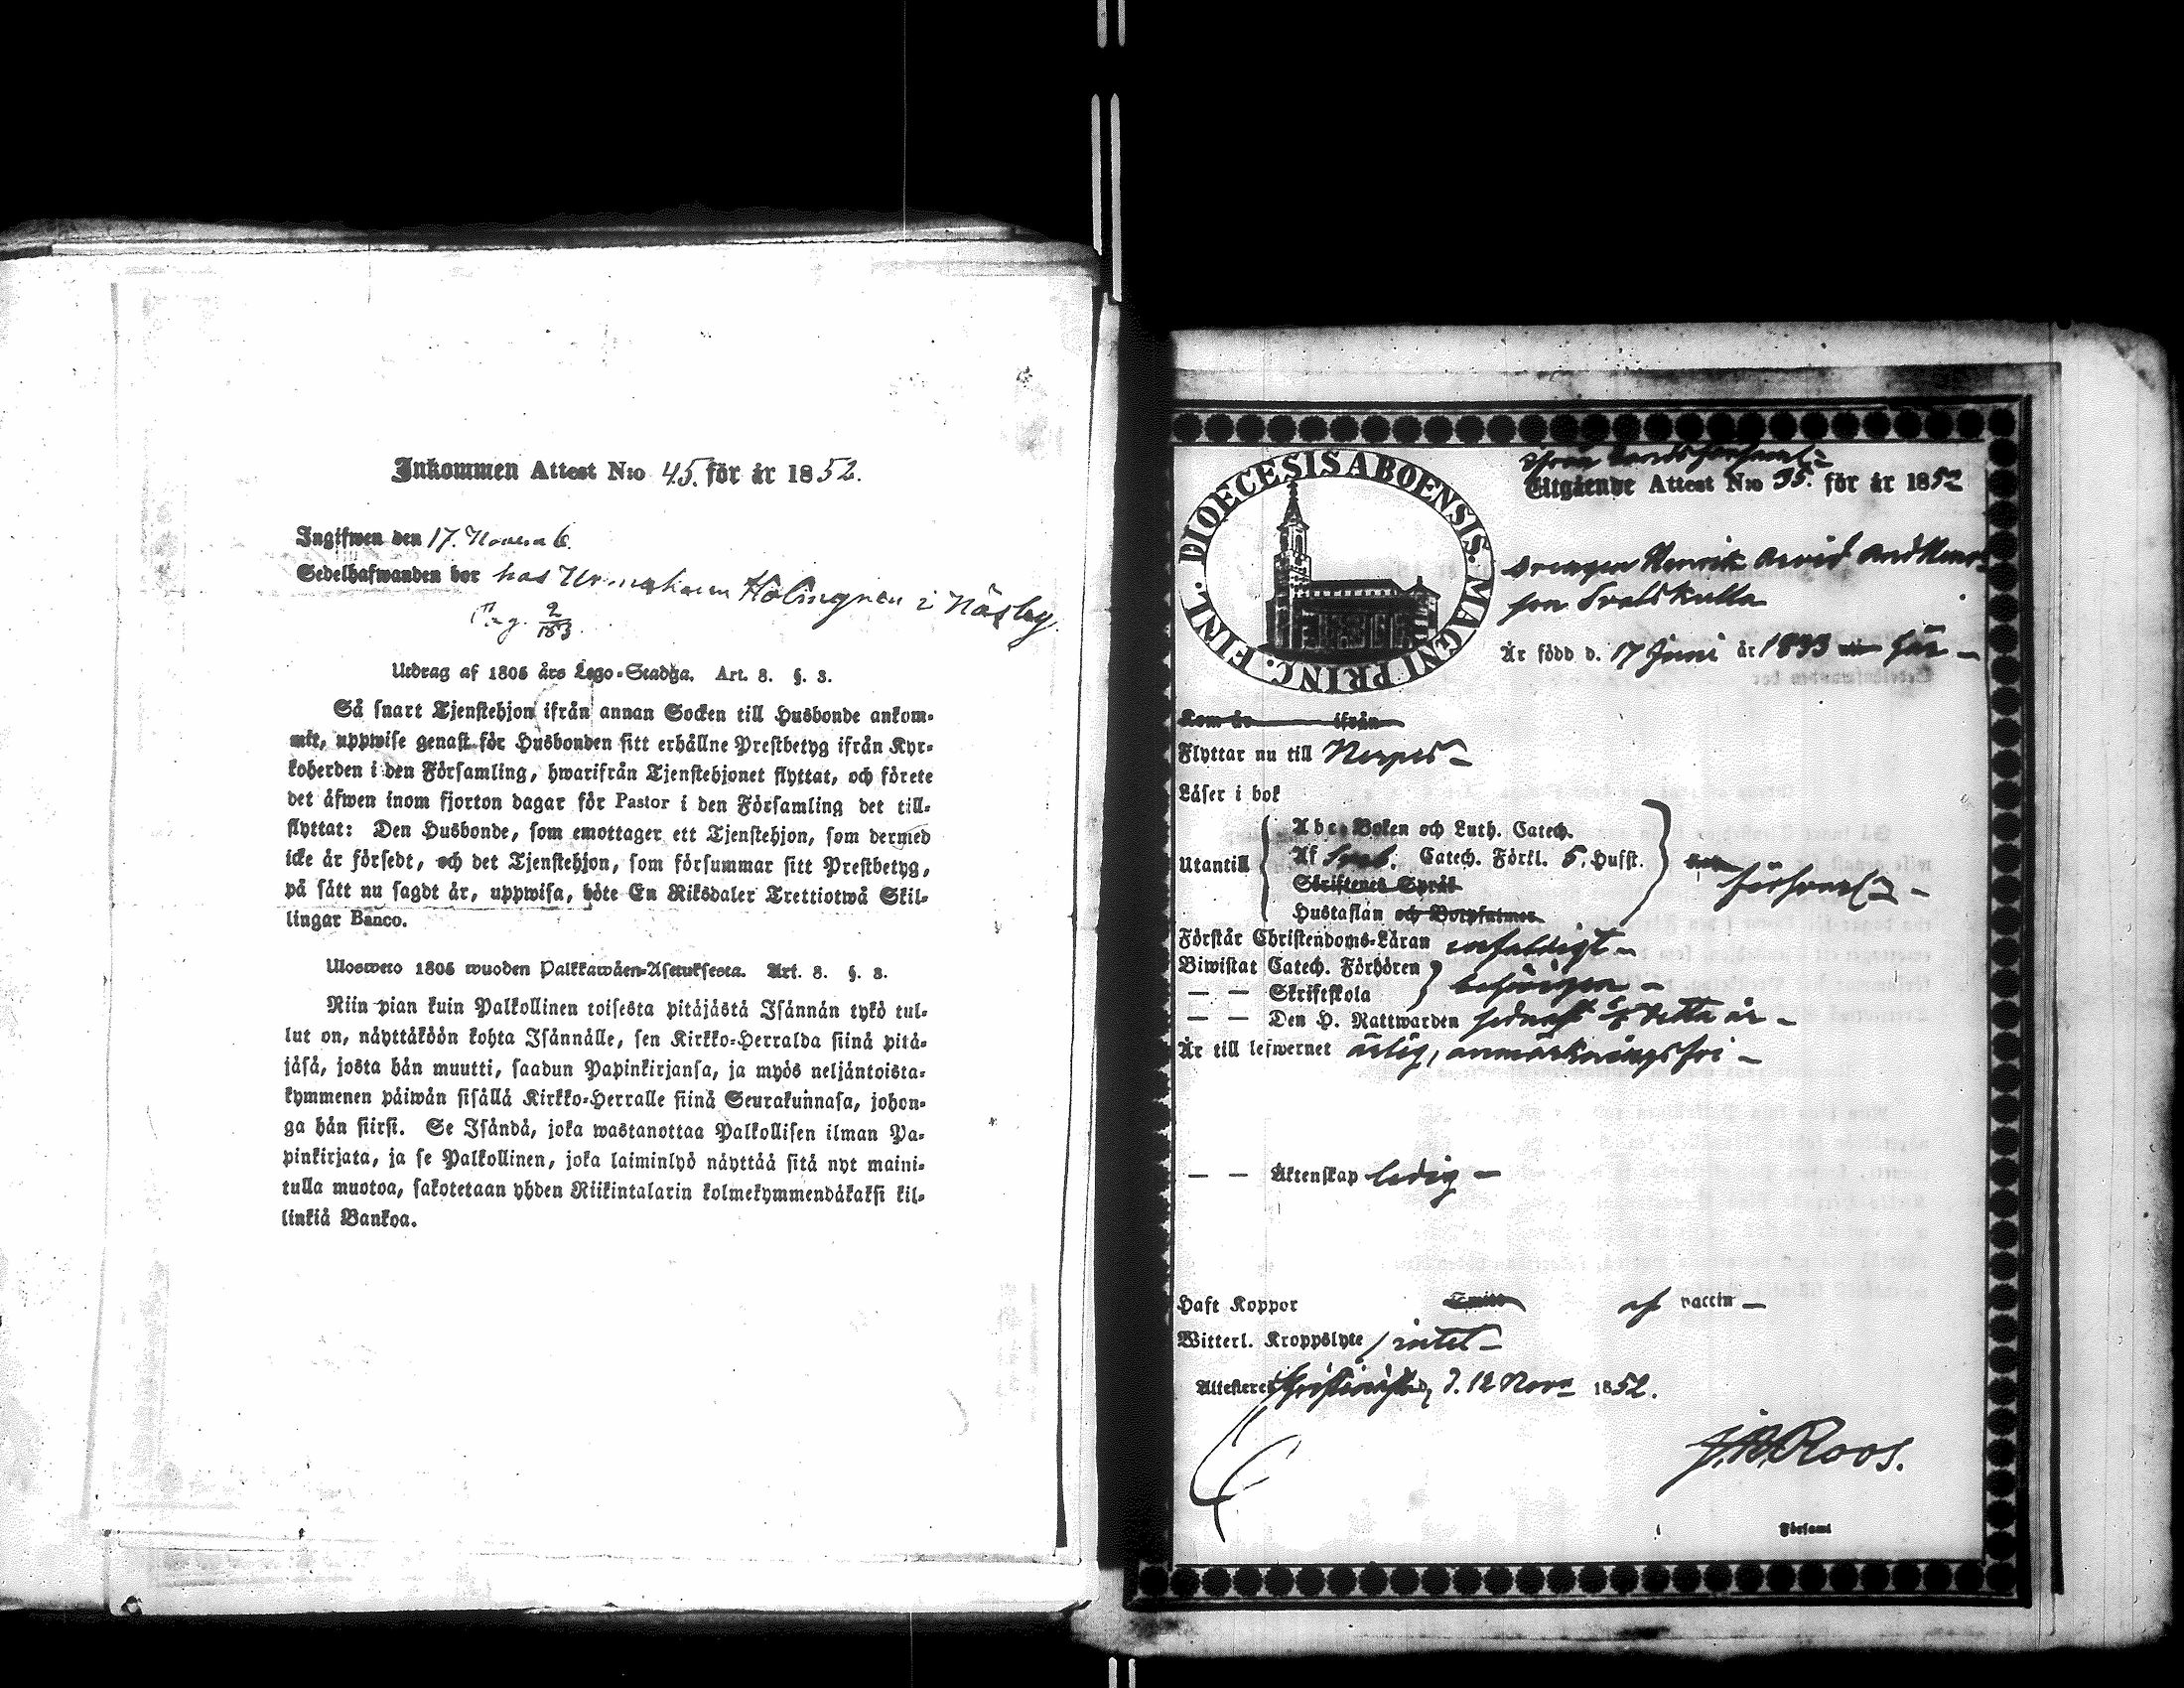 Inkommen Attest N:o 45. för år 1852.
Ingifwen den 17. Novemb.
Sedelhafwanden bor hos i Näsby
Pag. 2/183.
Utdrag af 1805 års Lego-Stadga. Art. 8. §. 3.
Så snart Tjenstehjon ifrån annan Socken till Husbonde ankom-
mit, uppwise genast för Husbonden sitt erhållne Prestbetyg ifrån Kyr-
koherden i den Församling, hwarifrån Tjenstehjonet flyttat, och förete
det äfwen inom fjorton dagar för Pastor i den Församling det till-
flyttat: Den Husbonde, som emottager ett Tjenstehjon, som dermed
icke är försedt, och det Tjenstehjon, som försummar sitt Prestbetyg,
på sätt nu sagdt är, uppwisa, böte En Riksdaler Trettiotwå Skil-
lingar Banco.
Ulosweto 1805 wuoden Palkkawäen-Asetuksesta. Art. 8. §. 3.
Niin pian kuin Palkollinen toisesta pitäjästä Isännän tykö tul-
lut on, näyttäköön kohta Isännälle, sen Kirkko-Herralda siinä pitä-
jäsä, josta hän muutti, saadun Papinkirjansa, ja myös neljäntoista-
kymmenen päiwän sisällä Kirkko-Herralle siinä Seurakunnasa, johon-
ga hän siirsi. Se Isändä, joka wastanottaa Palkollisen ilman Pa-
pinkirjata, ja se Palkollinen, joka laiminlyö näyttää sitä nyt maini-
tulla muotoa, sakotetaan yhden Riikintalarin kolmekymmendäkaksi kil-
linkiä Bankoa.
DIOECESIS ABOENSIS. MAGNI PRINC. FINL.
Utgående Attest N:o 35. för år 1852
Drengen Henrik Arvid
son
Är född d. 17 Juni år 1833 här
Kom år ifrån
Flyttar nu till Nerpes
Läser i bok
Abc-Boken och Luth. Catech.
Utantill Af Sveb. Catech. Förkl. 5. Hufst.
Skriftenes Språk
Hustaflan och Botpsalmer
försvarl.
Förstår Christendoms-Läran enfaldigt
Biwistat Catech. Förhören
— — Skriftskola behörigen
— — Den H. Nattwarden sednast detta år
Är till lefwernet ärlig, anmärkningsfri
— — Äktenskap ledig
Haft Koppor Smitt af vaccin
Witterl. Kroppslyte intet
Attesterer Christinestad, d. 12 Novr 1852.
J. B. Roos.
Församl